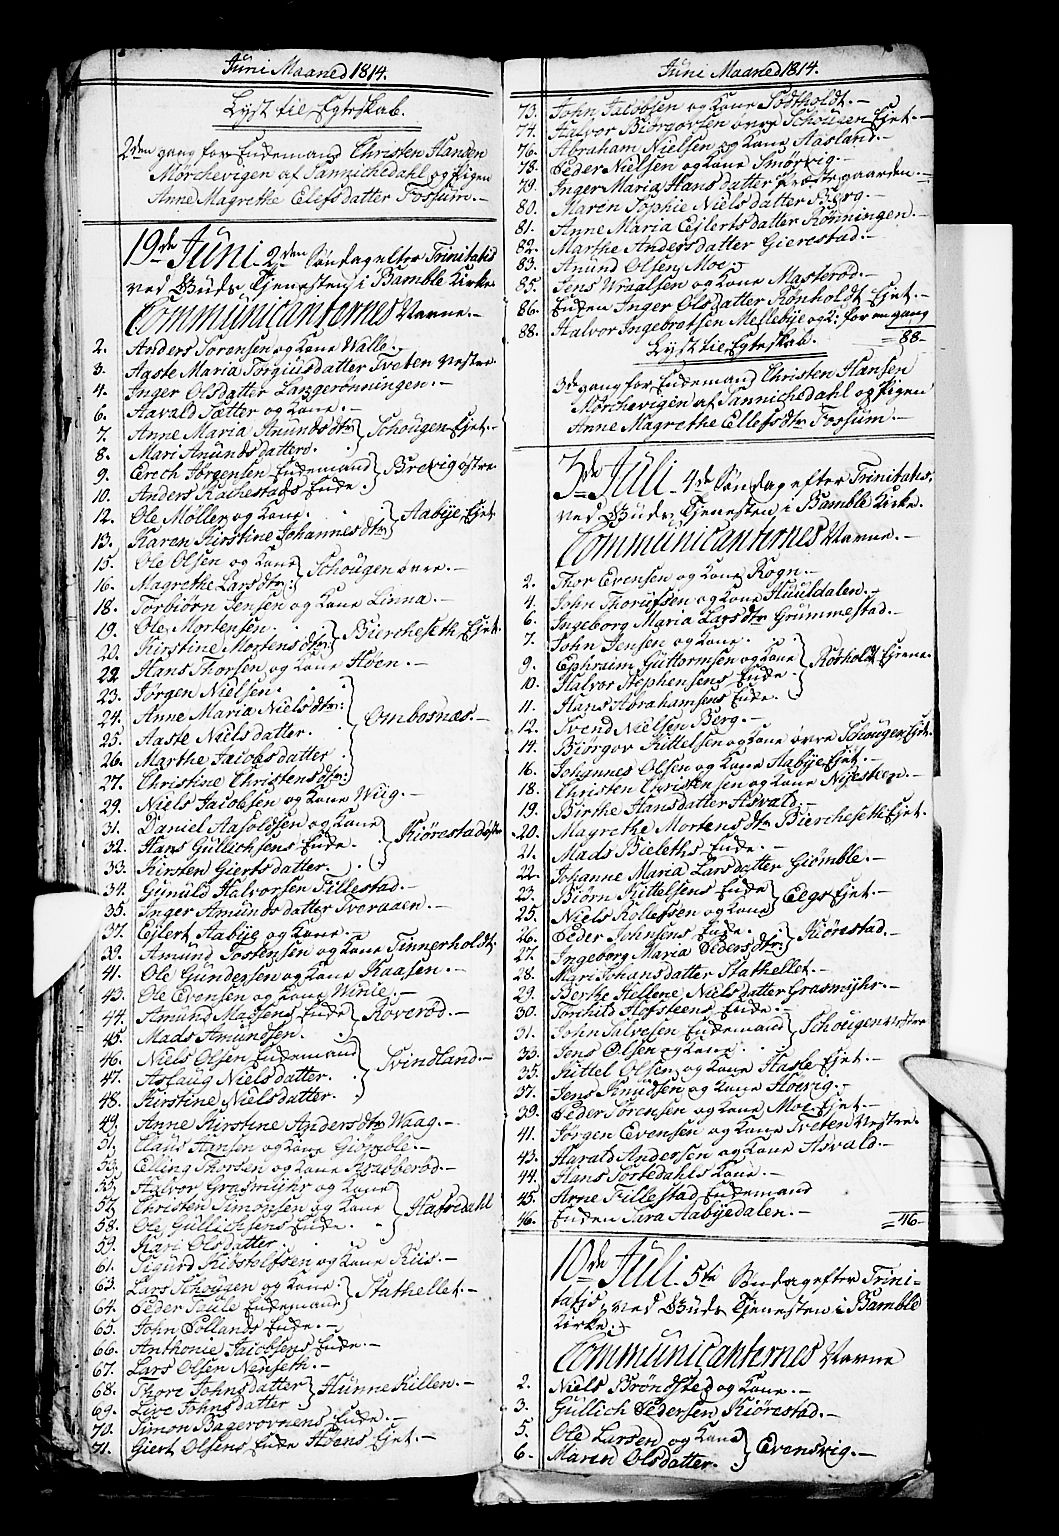 Juni Maaned 1814.
Lyst til Egteskab.
2den gang for Endemand Christen Hansen
Mörchevigen af Sannichedahl og Pigen
Anne Magrethe Elefsdatter Fossum.-
19de Juni 2den Söndag efter Trinitatis
ved Guds Tjenesten i Bamble Kirke
Communicanternes Navne.-
2. Anders Sörensen og Kone Valle.
3. Aaste Maria Torgiusdatter Tveten vestre
4. Inger Olsdatter Langerönningen.-
6. Aavald Sætter og Kone.-
7. Anne Maria Amundsdtr } Schougen Ejet.-
8. Mari Amundsdatter.
9. Erich Jörgensen Endemand } Brevig östre
10. Anders Kachestads Enke.
12. Ole Möller og Kone. } Aabye Ejet
13. Karen Kirstine Johannesdtr
15. Ole Olsen og Kone } Schougen övre.-
16. Magrethe Larsdtr:
18. Torbiörn Jensen og Kone Linna.-
19. Ole Mortensen. } Biercheseth Ejet
20. Kirstine Mortensdtr:
22 Hans Thorsen og Kone Höen.-
23. Jörgen Nielsen. } Ombosnæs.-
24. Anne Maria Nielsdtr:
25. Aaste Nielsdatter.
26. Marthe Jacobsdatter
27. Christine Christensdtr:
29. Niels Jacobsen og Kone Wiig.-
31. Daniel Aasoldsen og Kone } Kiörestad östre
32. Hans Gullichsens Enke.
33. Kirsten Giertsdatter.
34. Gunuld Halvorsen Fillestad.-
35. Inger Amundsdatter Tveraaen.-
37. Ejlert Aabye og Kone.-
39. Amund Tostensen og Kone Finnerholdt
41. Ole Gundersen og Kone Kaasen.-
43. Ole Evensen og Kone Vinie.-
44. Amund Madsens Enke } Roveröd.-
45. Mads Amundsen.
46. Niels Olsen Endemand } Trindland.-
47. Aslaug Nielsdatter.
48. Kirstine Nielsdatter.
49. Anne Kirstine Andersdtr Waag.-
51. Claus Hansen og Kone Giömble.-
53. Elling Thorsen og Kone Roveröd.-
55. Halvor Grasmyhr og Kone } Hafredahl
57. Christen Simonsen og Kone
58. Ole Gullichsens Enke.
59. Kari Olsdatter.
61. Sigurd Kiöstolfsen og Kone Riis.-
63. Lars Schougen og Kone. } Stathellet.-
64. Peder Teule Endemand
65. John Pollands Enke.-
66. Anthonie Jacobsens Enke.-
67. Lars Olsen Nenseth.-
68. Thore Johnsdatter } Hunne Killen.-
69. Live Johnsdatter
70. Simon Bagerovnens Enke.-
71. Giert Olsens Enke Höens Ejet.-
Juni Maaned 1814.
73. John Jacobsen og Kone Rödtholdt.-
74. Halvor Biörgorsen övre Schougen Ejet.-
76. Abraham Nielsen og Kone Aasland.-
78. Peder Nielsen og Kone Smörvig.-
79. Inger Maria Hansdatter Præstegaarden.-
80. Maren Sophie Nielsdatter Berg.-
81. Anne Maria Ejlertsdatter Rönningen.-
82. Marthe Andersdatter Gierestad.-
83. Amund Olsen Moe.-
85. Jens Wraalsen og Kone Masteröd.-
86. Enken Inger Olsdatter Rönholdt Ejet.-
88. Halvor Ingebretsen Mellebye og K: for en gang
=88-
Lyst til Egteskab.
3de gang for Endemand Christen Hansen
Mörchevigen af Sannichedahl og Pigen
Anne Magrethe Ellefsdtr Fossum.-
3de Juli 4de Söndag efter Trinitatis,
ved Guds Tjenesten i Bamble Kirke.
Communicanternes Navne.-
2. Thor Evensen og Kone Rogn.-
4. John Thorufsen og Kone Huuldalen.-
6. Ingeborg Maria Larsdtr Grummestad.-
7. John Jensen og Kone. } Rötholdt Ejene.
9. Ephraim Guttormsen og Kone
10. Halvor Stephensens Enke.
11. Hans Abrahamsens Enke.
12. Svend Nielsen Berg.-
14. Biörgor Kittelsen og Kone övre Schougen Ejet.
16. Johannes Olsen og Kone Aabye Ejet.-
18. Christen Christensen og Kone Nyestein.-
19. Birthe Hansdatter Asvald.-
20. Magrethe Mortensdtr Biercheseth Ejet.
21. Mads Bieleths Enke.-
22. Johanne Maria Larsdatter Giömble.-
23. Biörn Kittelsens Enke } Eegs Ejet.-
25. Niels Rollefsen og Kone
26. Peder Johnsens Enke. } Kiörestad.-
27. Ingeborg Maria Pedersdtr:
28. Mari Johansdatter Stathellet.-
29. Berthe Hellene Nielsdatter Grasmyhr.-
30. Torchild Hofsteens Enke.-
31. John Alvesen Endemand } Schougen vestre
33. Jens Olsen og Kone.
35. Kittel Olsen og Kone Haslee Ejet.-
37. Jens Knudsen og Kone Höevig.-
39. Peder Sörensen og Kone Moe Ejet.-
41. Jörgen Evensen og Kone Tveten vestre.
43. Harald Andersen og Kone Asvald.-
44. Hans Tortedahls Kone.-
45. Arne Fillestad Endemand
46. Enken Sara Aabyedalen.-
=46-
10de Juli 5te Söndag efter Trini-
tatis, ved Guds Tjenesten i Bamble
Kirke.
Communicanternes Navne
2. Niels Bröndsted og Kone.-
3. Gullich Pedersen Kiörestad.-
5. Ole Larsen og Kone } Evensvig.-
6. Maren Olsdatter.